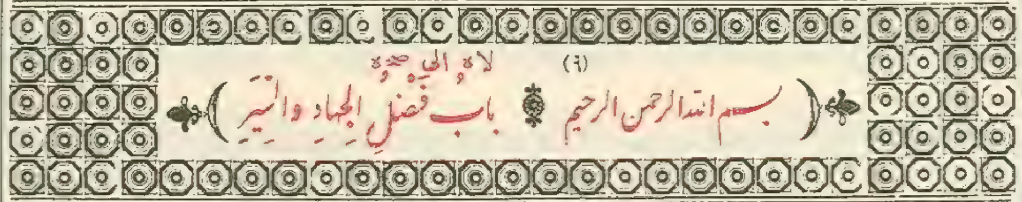 لاه الى (٦)
(بسم الله الرحمن الرحيم باب فَضْلِ الْجِهَادِ وَالسِّيَرِ)